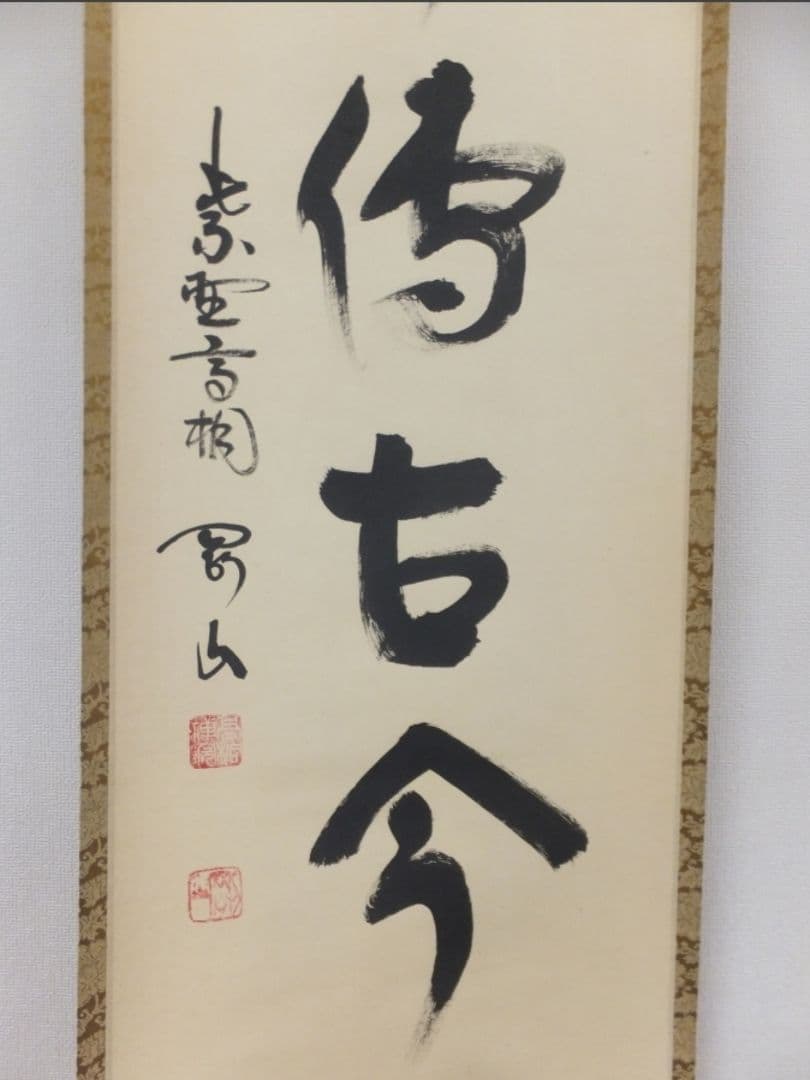 傳古今
紫野高桐 剛山